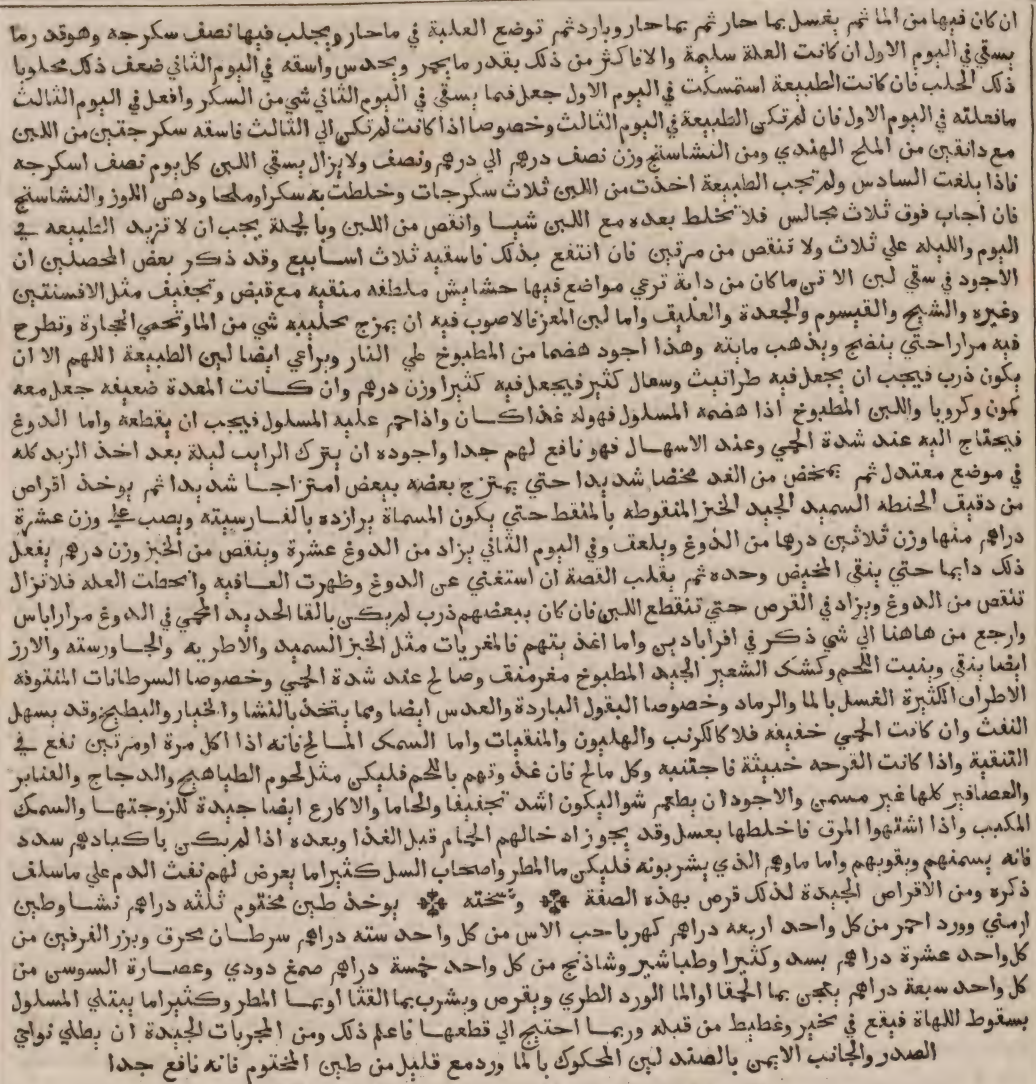 ان كان فيها من الما ثم يغسل بما حار ثم بما حار وبارد ثم توضع العلبة في ما حار ويحلب فيها نصف سكرجه وهو قدر ما
يسقي في اليوم الاول ان كانت العلة سليمة والا فاكثر من ذلك بقدر ما يحرر ويحدس واسقه في اليوم الثاني ضعف ذلك محلوبا
ذلك الحلب فان كانت الطبيعة استمسكت في اليوم الاول جعل فيما يسقي في اليوم الثاني شي من السكر وافعل في اليوم الثالث
ما فعلته في اليوم الاول فان لم تكن الطبيعة في اليوم الثالث وخصوصا اذا كانت لم تكن الي الثالث فاسقه سكرجتين من اللبن
مع دانقين من الملح الهندي ومن النشاستج وزن نصف درهم الي درهم ونصف ولا يزال يسقي اللبن كل يوم نصف اسكرجه
فاذا بلغت السادس ولم تجب الطبيعة اخذت من اللبن ثلاث سكرجات وخلطت به سكرا وملحا ودهن اللوز والنشاستج
فان اجاب فوق ثلاث مجالس فلا تخلط بعده مع اللبن شيا وانقص من اللبن وبالجملة يجب ان لا تزيد الطبيعه في
اليوم والليله علي ثلاث ولا تنقص من مرتين فان انتفع بذلك فاسقيه ثلاث اسابيع وقد ذكر بعض المحصلين ان
الاجود في سقي لبن الاتن ما كان من دابة ترعي مواضع فيها حشايش ملطفه منقيه مع قبض وتجفيف مثل الافسنتين
وغيره والشيح والقيسوم والجعدة والعليق واما لبن المعز فالاصوب فيه ان يمزج بحليبه شي من الما وتحمي الحجارة وتطرح
فيه مرارا حتي ينضج ويذهب مايته وهذا اجود هضما من المطبوخ علي النار ويراعي ايضا لين الطبيعة اللهم الا ان
يكون ذرب فيجب ان يجعل فيه طراثيث وسعال كثير فيجعل فيه كثيرا وزن درهم وان كانت المعدة ضعيفه جعل معه
كمون وكرويا واللبن المطبوخ اذا هضمه المسلول فهو له غذا كان واذا حم عليه المسلول فيجب ان يقطعه واما الدوغ
فيحتاج اليه عند شدة الحمي وعند الاسهال فهو نافع لهم جدا واجوده ان يترك الرايب ليلة بعد اخذ الزبد كله
في موضع معتدل ثم يمخض من الغد مخضا شديدا حتي يمتزج بعضه ببعض امتزاجا شديدا ثم يوخذ اقراص
من دقيق الحنطه السميد الجيد الخبز المنقوطه بالمنقط حتي يكون المسماة برازده بالفارسيته ويصب علي وزن عشرة
دراهم منها وزن ثلاثين درهما من الدوغ ويلعق وفي اليوم الثاني يزاد من الدوغ عشرة وينقص من الخبز وزن درهم يفعل
ذلك دايما حتي ينقي المخيض وحده ثم يقلب القصة ان استغني عن الدوغ وظهرت العافيه وانحطت العله فلا تزال
تنقص من الدوغ ويزاد في القرص حتي تنقطع اللبن فان كان ببعضهم ذرب لم يكن بالقا الحديد المحمي في الدوغ مرارا باس
وارجع من هاهنا الي شي ذكر في اقرابادين واما اغذيتهم فالمغريات مثل الخبز السميد والاطريه والجاورسته والارز
ايضا ينقي وينبت اللحم وكشك الشعير الجيد المطبوخ مغر منق وصالح عند شدة الحمي وخصوصا السرطانات المنتوفه
الاطراف الكثيرة الغسل بالما والرماد وخصوصا البقول الباردة والعدس ايضا ومما يتخذ بالنشا والخيار والبطيخ وقد يسهل
النفث وان كانت الحمي خفيفه فلا كالكرنب والهليون والمنقيات واما السمك المالح فانه اذا اكل مرة او مرتين نفع في
التنقية واذا كانت القرحه خبيثة فاجتنبه وكل مالح فان غذوتهم باللحم فليكن مثل لحوم الطياهيج والدجاج والقنابر
والعصافير كلها غير مسمن والاجود ان يطعم شوا ليكون اشد تجفيفا والحاما والاكارع ايضا جيدة للزوجتها والسمك
المكبب واذا اشتهوا المرق فاخلطها بعسل وقد يجوز ادخالهم الحمام قبل الغذا وبعده اذا لم يكن باكبادهم سدد
فانه يسمنهم ويقويهم واما ماوهم الذي يشربونه فليكن ما المطر واصحاب السل كثيرا ما يعرض لهم نفث الدم علي ما سلف
ذكره ومن الاقراص الجيدة لذلك قرص بهذه الصفة ونسخته يوخذ طين مختوم ثلثه دراهم نشا وطين
ارمني وورد احمر من كل واحد اربعه دراهم كهربا حب الاس من كل واحد سته دراهم سرطان محرق وبزر الفرفين من
كل واحد عشرة دراهم بسد وكثيرا وطباشير وشاذنج من كل واحد خمسة دراهم صمغ دودي وعصارة السوسن من
كل واحد سبعة دراهم يعجن بما الحمقا او الما الورد الطري ويقرص ويشرب بما القثا او بما المطر وكثيرا ما يبتلي المسلول
بسقوط اللهاة فيقع في نخير وغطيط من قبله وربما احتيج الي قطعها فاعلم ذلك ومن المجربات الجيدة ان يطلي نواحي
الصدر والجانب الايمن بالصندلين المحكوك بالما ورد مع قليل من طين المختوم فانه نافع جدا